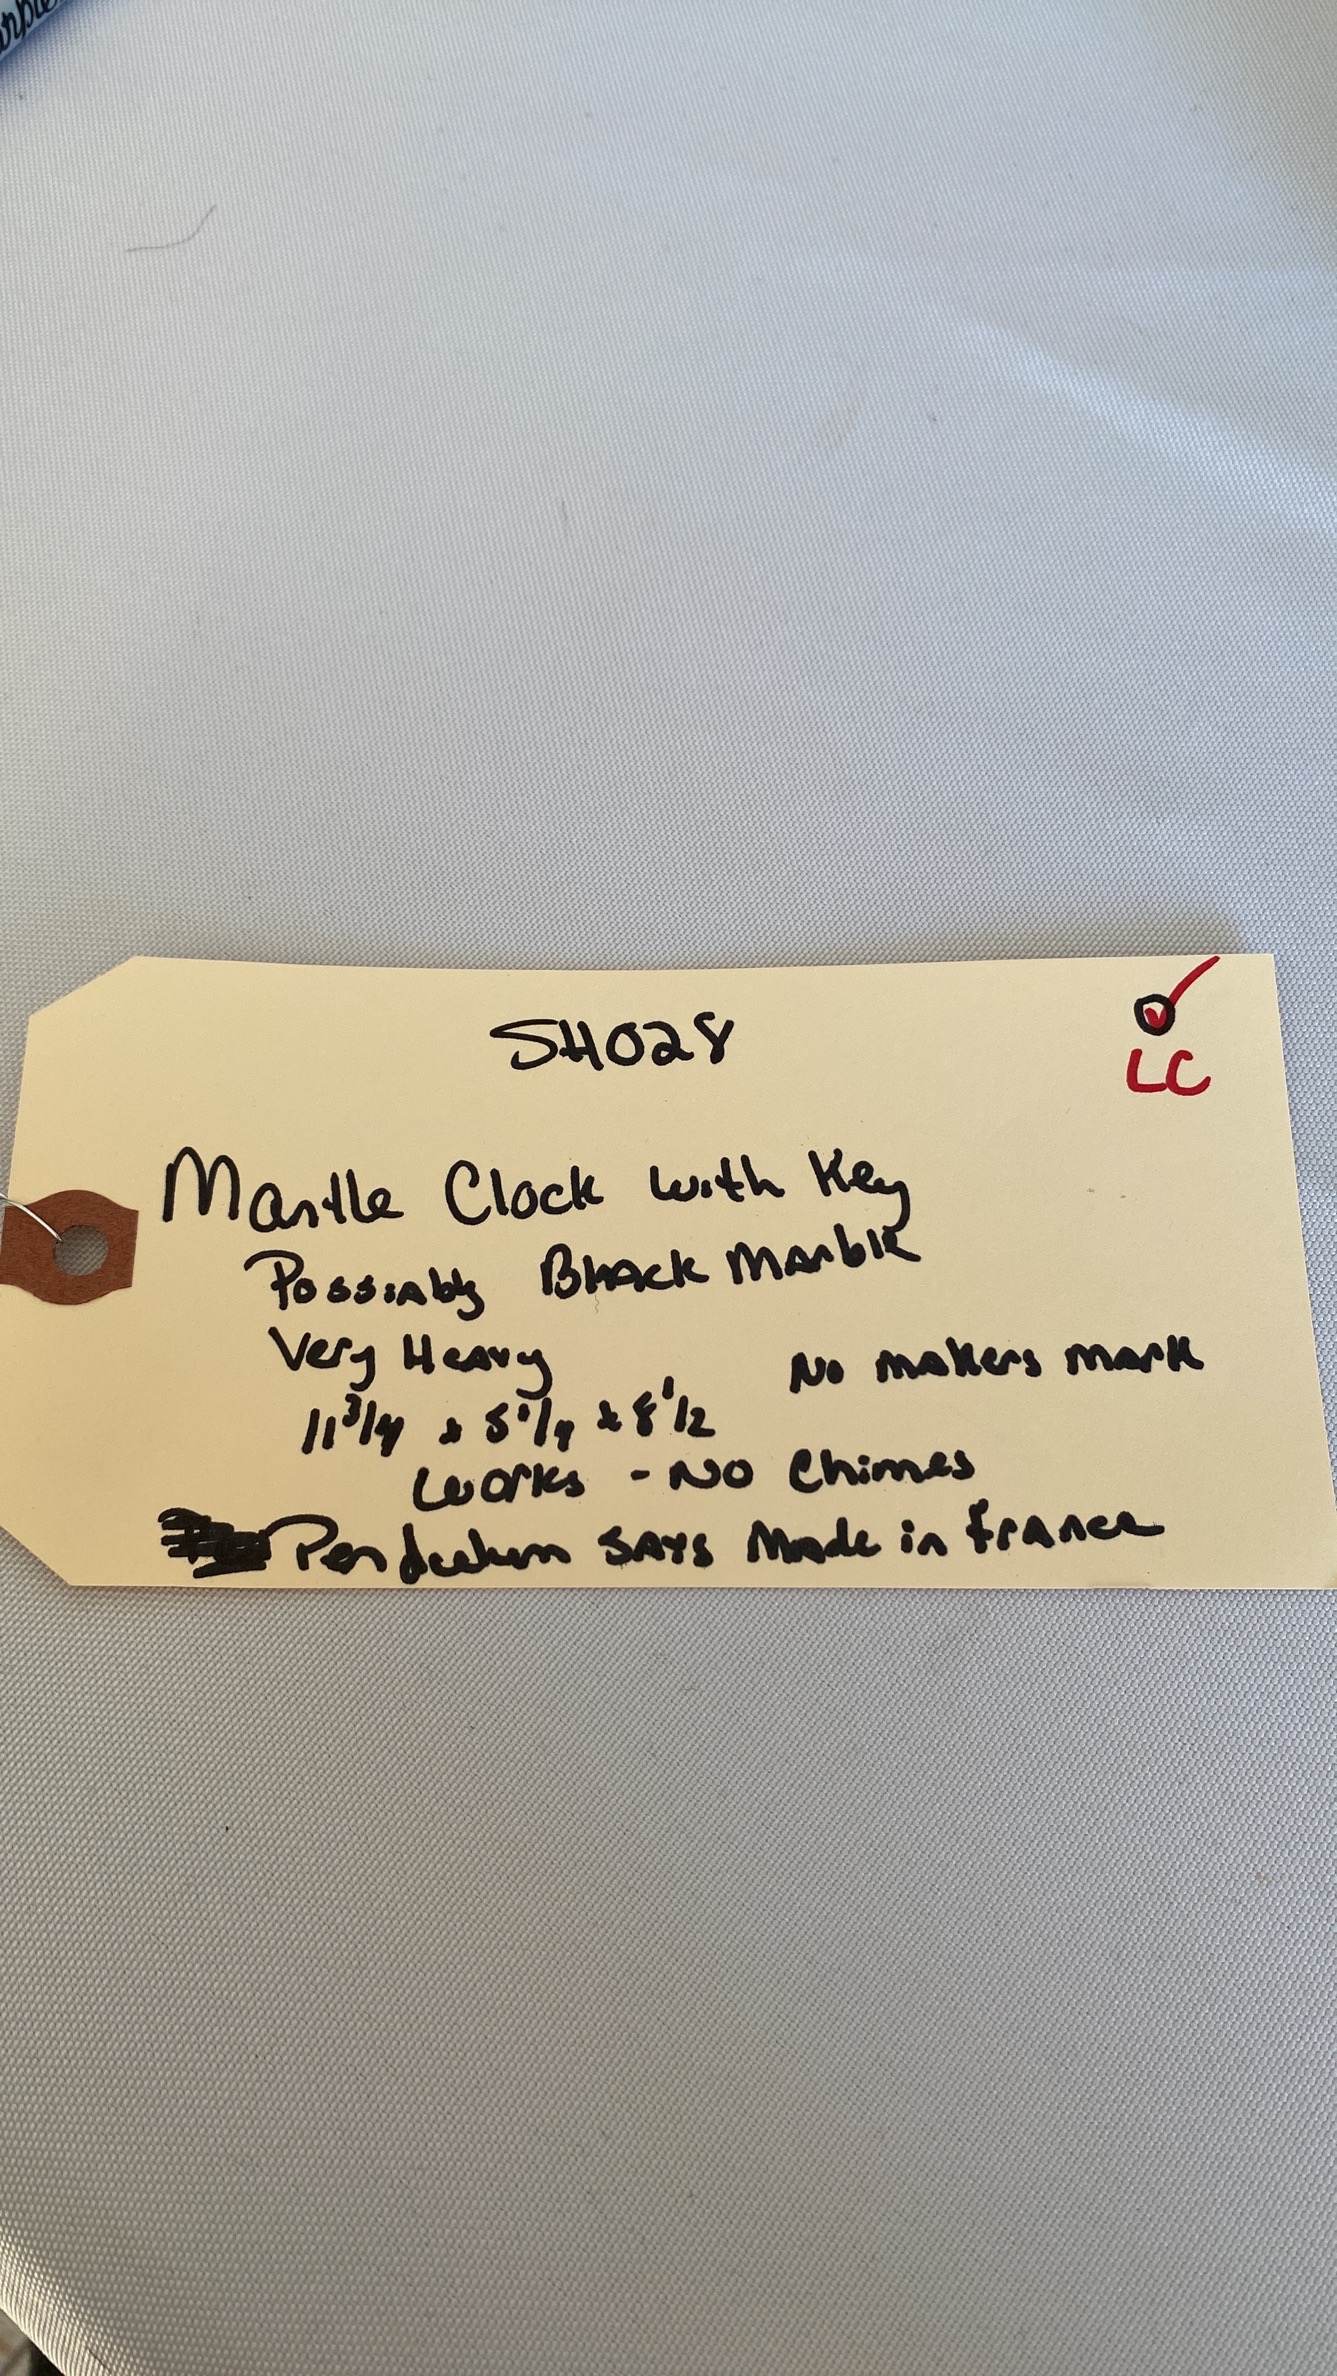 SH028
LC
Mantle Clock with Key
Possiably Black Marble
Very Heavy No makers mark
11 3/4 x 5 1/4 x 8 1/2
Works - No Chimes
Pendulum SAYS Made in France